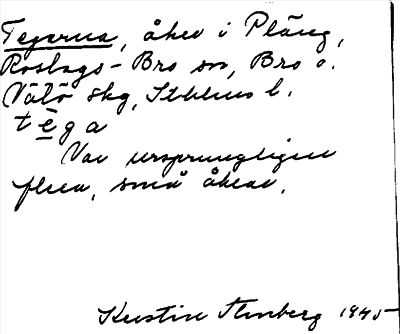 Tegarna, åker i Pläng,
Roslags-Bro sn, Bro o.
Vätö skg, Sthlms l.
tega
Var ursprungligen
flera, små åkrar.
Kerstin Stenberg 1945